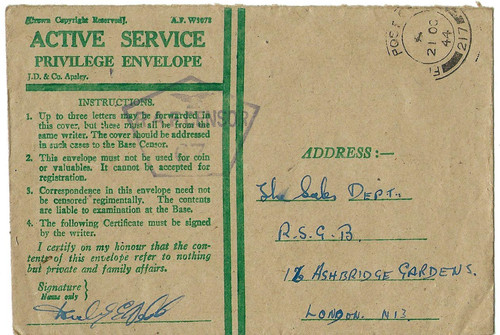 [Crown Copyright Reserved]. A.F. W3078
ACTIVE SERVICE
PRIVILEGE ENVELOPE
J.D. & Co. Apsley.
INSTRUCTIONS.
1. Up to three letters may be forwarded in
this cover, but these must all be from the
same writer. The cover should be addressed
in such cases to the Base Censor.
2. This envelope must not be used for coin
or valuables. It cannot be accepted for
registration.
3. Correspondence in this envelope need not
be censored regimentally. The contents
are liable to examination at the Base.
4. The following Certificate must be signed
by the writer.
I certify on my honour that the con-
tents of this envelope refer to nothing
but private and family affairs.
Signature
Name only
CENSOR
POST
21 OC
44
217
ADDRESS :—
The Sales DEPT.,
R.S.G.B.
ASHBRIDGE GARDENS.
LONDON. N13